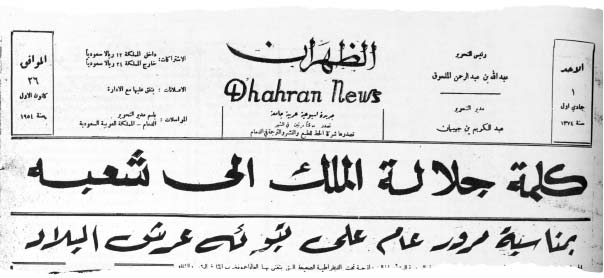 الاحد
١
جمادي اول
سنة ١٣٧٤
رئيس التحرير
عبدالله بن عبد الرحمن الملحوق
مدير التحرير
عبد الكريم بن جهيمان
الظهران
Dhahran News
جريدة اسبوعية عربية جامعة
تصدر مؤقتا مرتين في الشهر
تصدرها شركة الخط للطبع والنشر والترجمة في الدمام
الاشتراكات: داخل المملكة ١٢ ريالا سعودياً
خارج المملكة ٢٤ ريالا سعودياً
الاعلانات: يتفق عليها مع الادارة
المراسلات: باسم مدير التحرير
الدمام - المملكة العربية السعودية
الموافق
٢٦
كانون الاول
سنة ١٩٥٤
كلمة جلالة الملك الى شعبه
بمناسبة مرور عام على تبوئه عرش البلاد